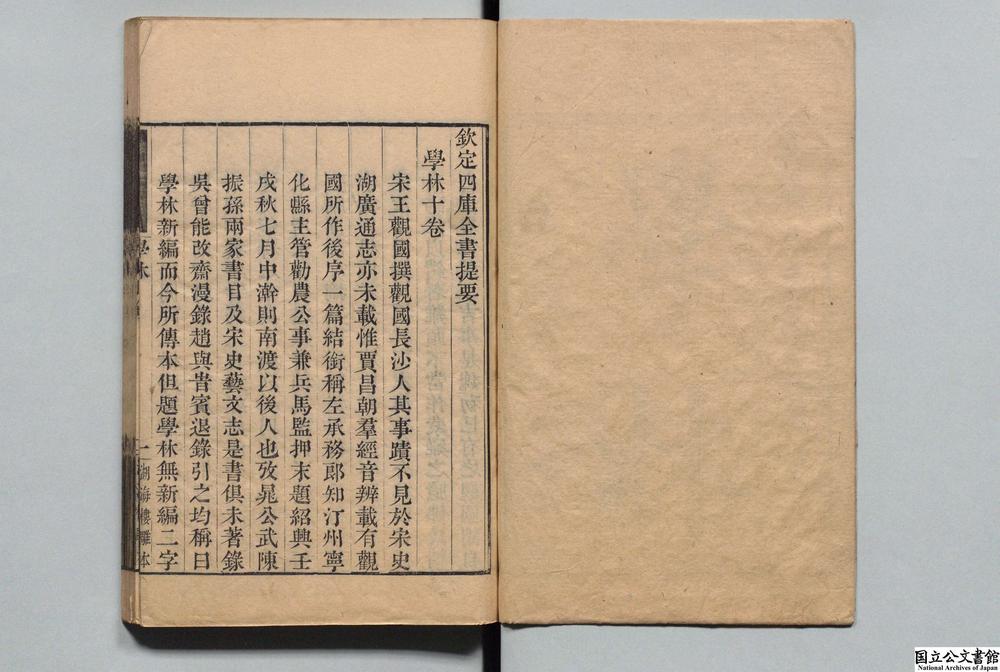 欽定四庫全書提要
學林十卷
宋王觀國撰觀國長沙人其事蹟不見於宋史
湖廣通志亦未載惟賈昌朝羣經音辨載有觀
國所作後序一篇結銜稱左承務郎知汀州寧
化縣主管勸農公事兼兵馬監押末題紹興壬
戌秋七月中澣則南渡以後人也攷晁公武陳
振孫兩家書目及宋史藝文志是書俱未著錄
吳曾能改齋漫錄趙與旹賓退錄引之均稱曰
學林新編而今所傳本但題學林無新編二字
學林
一
湖海樓雕本
国立公文書館
National Archives of Japan